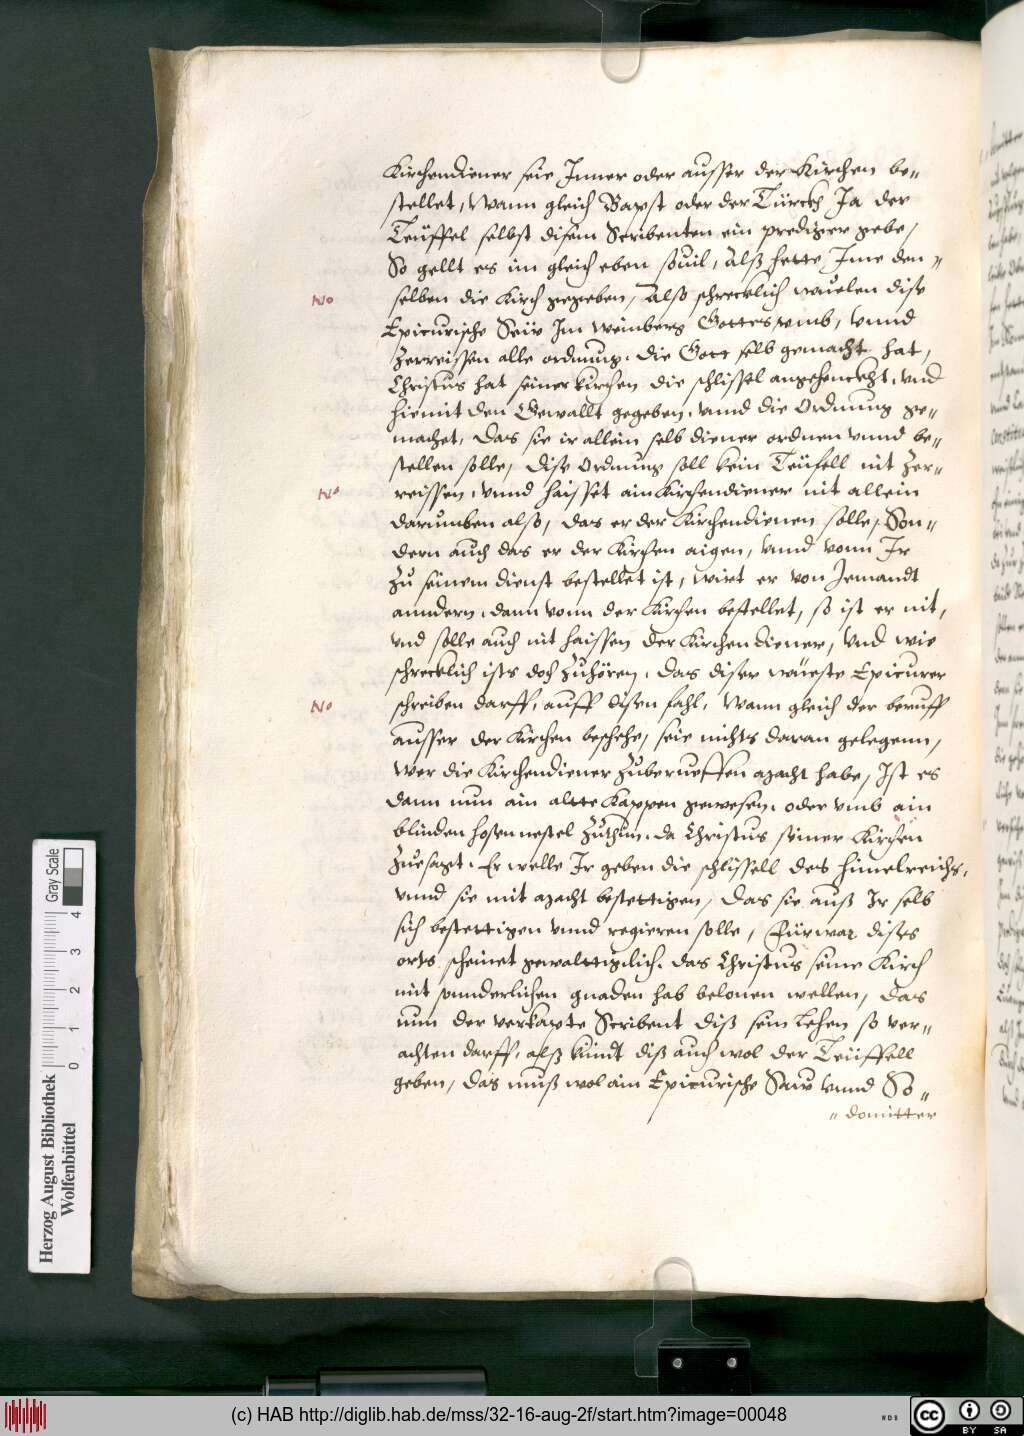 Kirchendiener seie Inner oder ausser der Kirchen be„
stellet, Wann gleich Bapst oder der Türckh Ja der
Teüffel selbst disem Scribenten ein prediger gebe,
So gellt es im gleich eben souil, Alß hette Ime den„
selben die Kirch gegeben, Also schrecklich wuelen dise
No
Epicurische Seüw Im weinberg Gottes vmb, Vnnd
Zerreissen alle ordnung. die Gott selb gemacht hat,
Christus hat seiner kirchen die schlissel angehenckht, vnd
hiemit den Gewallt gegeben, vnnd die Ordnung ge„
machet, das sie ir allein selb diener ordnen vnnd be„
stellen solle, dise Ordnung soll kein Teüfell nit Zer„
reissen, vnnd haisset ain Kirchendiener nit allein
No
darumben also, das er der Kirchendienen solle, Son„
dern auch das er der Kirchen aigen, vnnd vonn Ir
Zu seinem dienst bestellet ist, wirt er von Jemandt
anndern, dann vonn der Kirchen bestellet, so ist er nit,
vnd solle auch nit haissen der Kirchendiener, Vnd wie
schrecklich ists doch Zuhören, das diser wüeste Epicurer
schreiben darff, auff disen fahl, Wann gleich der beruff
No
ausser der Kirchen beschehe, seie nichts daran gelegenn,
Wer die Kirchendiener Zuberueffen macht habe, Ist es
dann nun ain altte Kappen gewesen, oder vmb ain
blinden hosennestel Zuthun, da Christus seiner Kirchen
Zuesagt. Er welle Ir geben die schlissell des himelreichs,
vnnd sie mit macht bestettigen, das sie auß Ir selb
sich bestettigen vnnd regieren solle, Fürwar dises
orts scheinet gewalttigclich, das Christus seine Kirch
mit sunderlichen gnaden hab belonen wellen, das
nun der verkapte Scribent diß sein Lehen so ver„
achten darff, alß kündt diß auch wol der Teüffell
geben, das muß wol ain Epicurische Sauw vnnd So„
„domitter
Herzog August Bibliothek
Wolfenbüttel
Gray Scale
0 1 2 3 4
(c) HAB http://diglib.hab.de/mss/32-16-aug-2f/start.htm?image=00048
WDB
cc BY SA